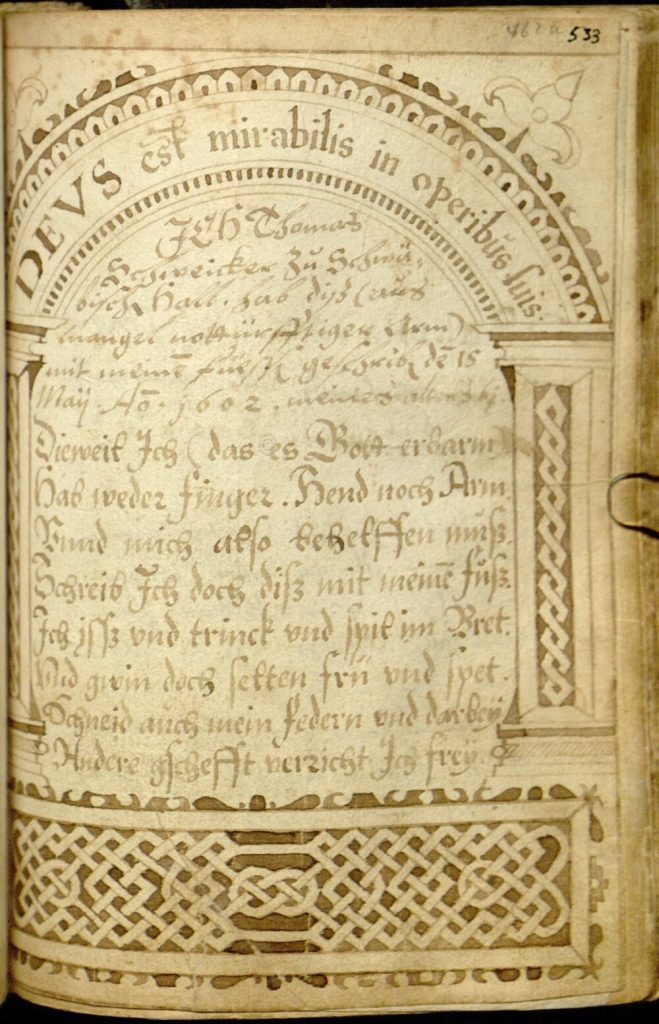 462a 533
DEVS est mirabilis in operibus suis.
JCH Thomas
Schweicker zu Schwä-
bisch Hall. hab diß (aus
mangel nottürfftiger Arm)
mit meinē füeß geschribē dē 15
Maij. Aō. 1602. meines alters
Dieweil Ich (das es Gott erbarm)
Hab weder finger. Hend noch Arm.
Vnnd mich also behelffen muß.
Schreib Ich doch diß mit meinē fuß.
Ich jsß vnd trinck vnd spil im Bret.
Vnd gwin doch selten frü vnd spet.
Schneid auch mein federn vnd darbey
Andere gschefft verricht Ich frey.